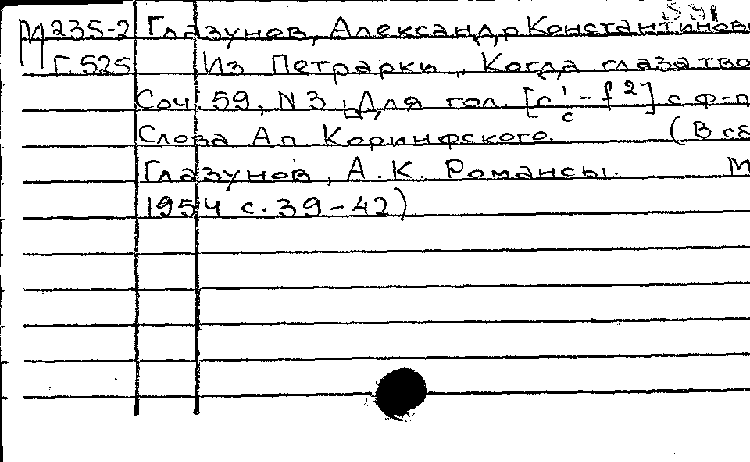 РД 235-2 Глазунов, Александр Константинови
Г.525 Из Петрарки „Когда глаза тво
Соч. 59, N 3, Для гол. [c¹-f²] с ф-п
Слова Ап. Коринфского. (В сб
Глазунов, А.К. Романсы. М
1954 с. 39-42)